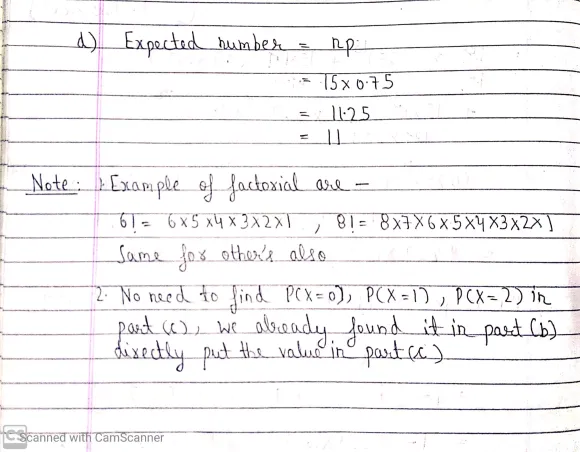 d) Expected number = np
= 15 x 0.75
= 11.25
= 11
Note : 1. Example of factorial are —
6! = 6x5x4x3x2x1 , 8! = 8x7x6x5x4x3x2x1
Same for other's also
2. No need to find P(X=0), P(X=1), P(X=2) in
part (c), we already found it in part (b)
directly put the value in part (c)
CS Scanned with CamScanner